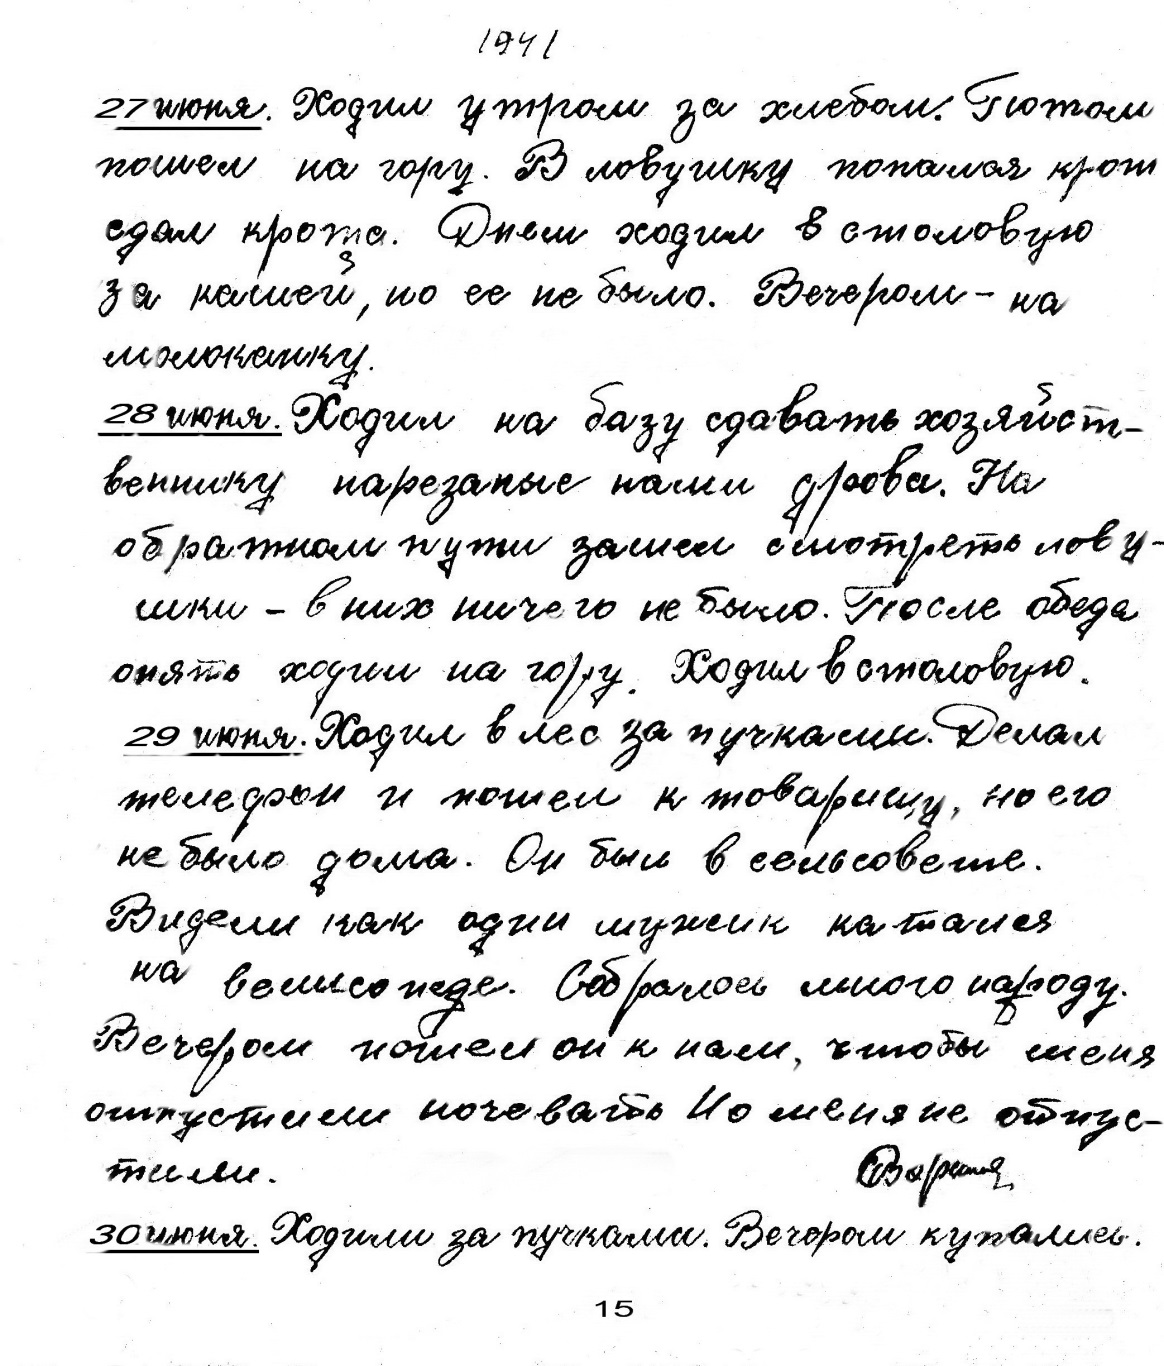 1941
27 июня. Ходил утром за хлебом. Потом
пошел на гору. В ловушку попался крот
сдал крота. Днем ходил в столовую
за кашей, но ее не было. Вечером - на
молоканку.
28 июня. Ходил на базу сдавать хозяйст-
веннику нарезаные нами дрова. На
обратном пути зашел смотреть лову-
шки - в них ничего не было. После обеда
опять ходил на гору. Ходил в столовую.
29 июня. Ходил в лес за пучками. Делал
телефон и пошел к товарищу, но его
не было дома. Он был в сельсовете.
Видели как один мужик катался
на велисопеде. Собралось много народу.
Вечером пошел он к нам, чтобы меня
отпустили ночевать Но меня не отпус-
тили.
30 июня. Ходили за пучками. Вечером купались.
15